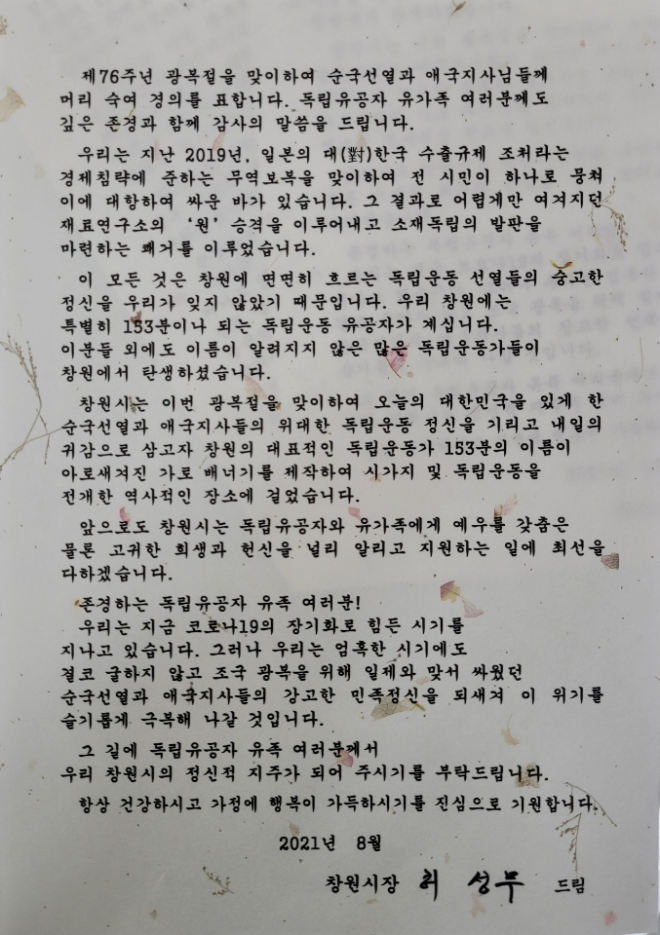 제76주년 광복절을 맞이하여 순국선열과 애국지사님들께
머리 숙여 경의를 표합니다. 독립유공자 유가족 여러분께도
깊은 존경과 함께 감사의 말씀을 드립니다.
우리는 지난 2019년, 일본의 대(對)한국 수출규제 조처라는
경제침략에 준하는 무역보복을 맞이하여 전 시민이 하나로 뭉쳐
이에 대항하여 싸운 바가 있습니다. 그 결과로 어렵게만 여겨지던
재료연구소의 '원' 승격을 이루어내고 소재독립의 발판을
마련하는 쾌거를 이루었습니다.
이 모든 것은 창원에 면면히 흐르는 독립운동 선열들의 숭고한
정신을 우리가 잊지 않았기 때문입니다. 우리 창원에는
특별히 153분이나 되는 독립운동 유공자가 계십니다.
이분들 외에도 이름이 알려지지 않은 많은 독립운동가들이
창원에서 탄생하셨습니다.
창원시는 이번 광복절을 맞이하여 오늘의 대한민국을 있게 한
순국선열과 애국지사들의 위대한 독립운동 정신을 기리고 내일의
귀감으로 삼고자 창원의 대표적인 독립운동가 153분의 이름이
아로새겨진 가로 배너기를 제작하여 시가지 및 독립운동을
전개한 역사적인 장소에 걸었습니다.
앞으로도 창원시는 독립유공자와 유가족에게 예우를 갖춤은
물론 고귀한 희생과 헌신을 널리 알리고 지원하는 일에 최선을
다하겠습니다.
존경하는 독립유공자 유족 여러분!
우리는 지금 코로나19의 장기화로 힘든 시기를
지나고 있습니다. 그러나 우리는 엄혹한 시기에도
결코 굴하지 않고 조국 광복을 위해 일제와 맞서 싸웠던
순국선열과 애국지사들의 강고한 민족정신을 되새겨 이 위기를
슬기롭게 극복해 나갈 것입니다.
그 길에 독립유공자 유족 여러분께서
우리 창원시의 정신적 지주가 되어 주시기를 부탁드립니다.
항상 건강하시고 가정에 행복이 가득하시기를 진심으로 기원합니다.
2021년 8월
창원시장 허 성무 드림